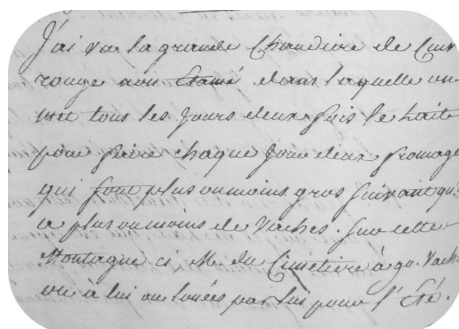 J'ai vu la grande Chaudiere de Cuiv
rouge non Etamé dans laquelle on
met tous les Jours deux fois le Lait
pour faire chaque Jour deux fromage
qui sont plus ou moins gros suivant qu'
a plus ou moins de Vaches. Sur cette
Montagne ci M. du Cimetiere a 90. Vach
ou à lui ou louées par lui pour l'Eté.